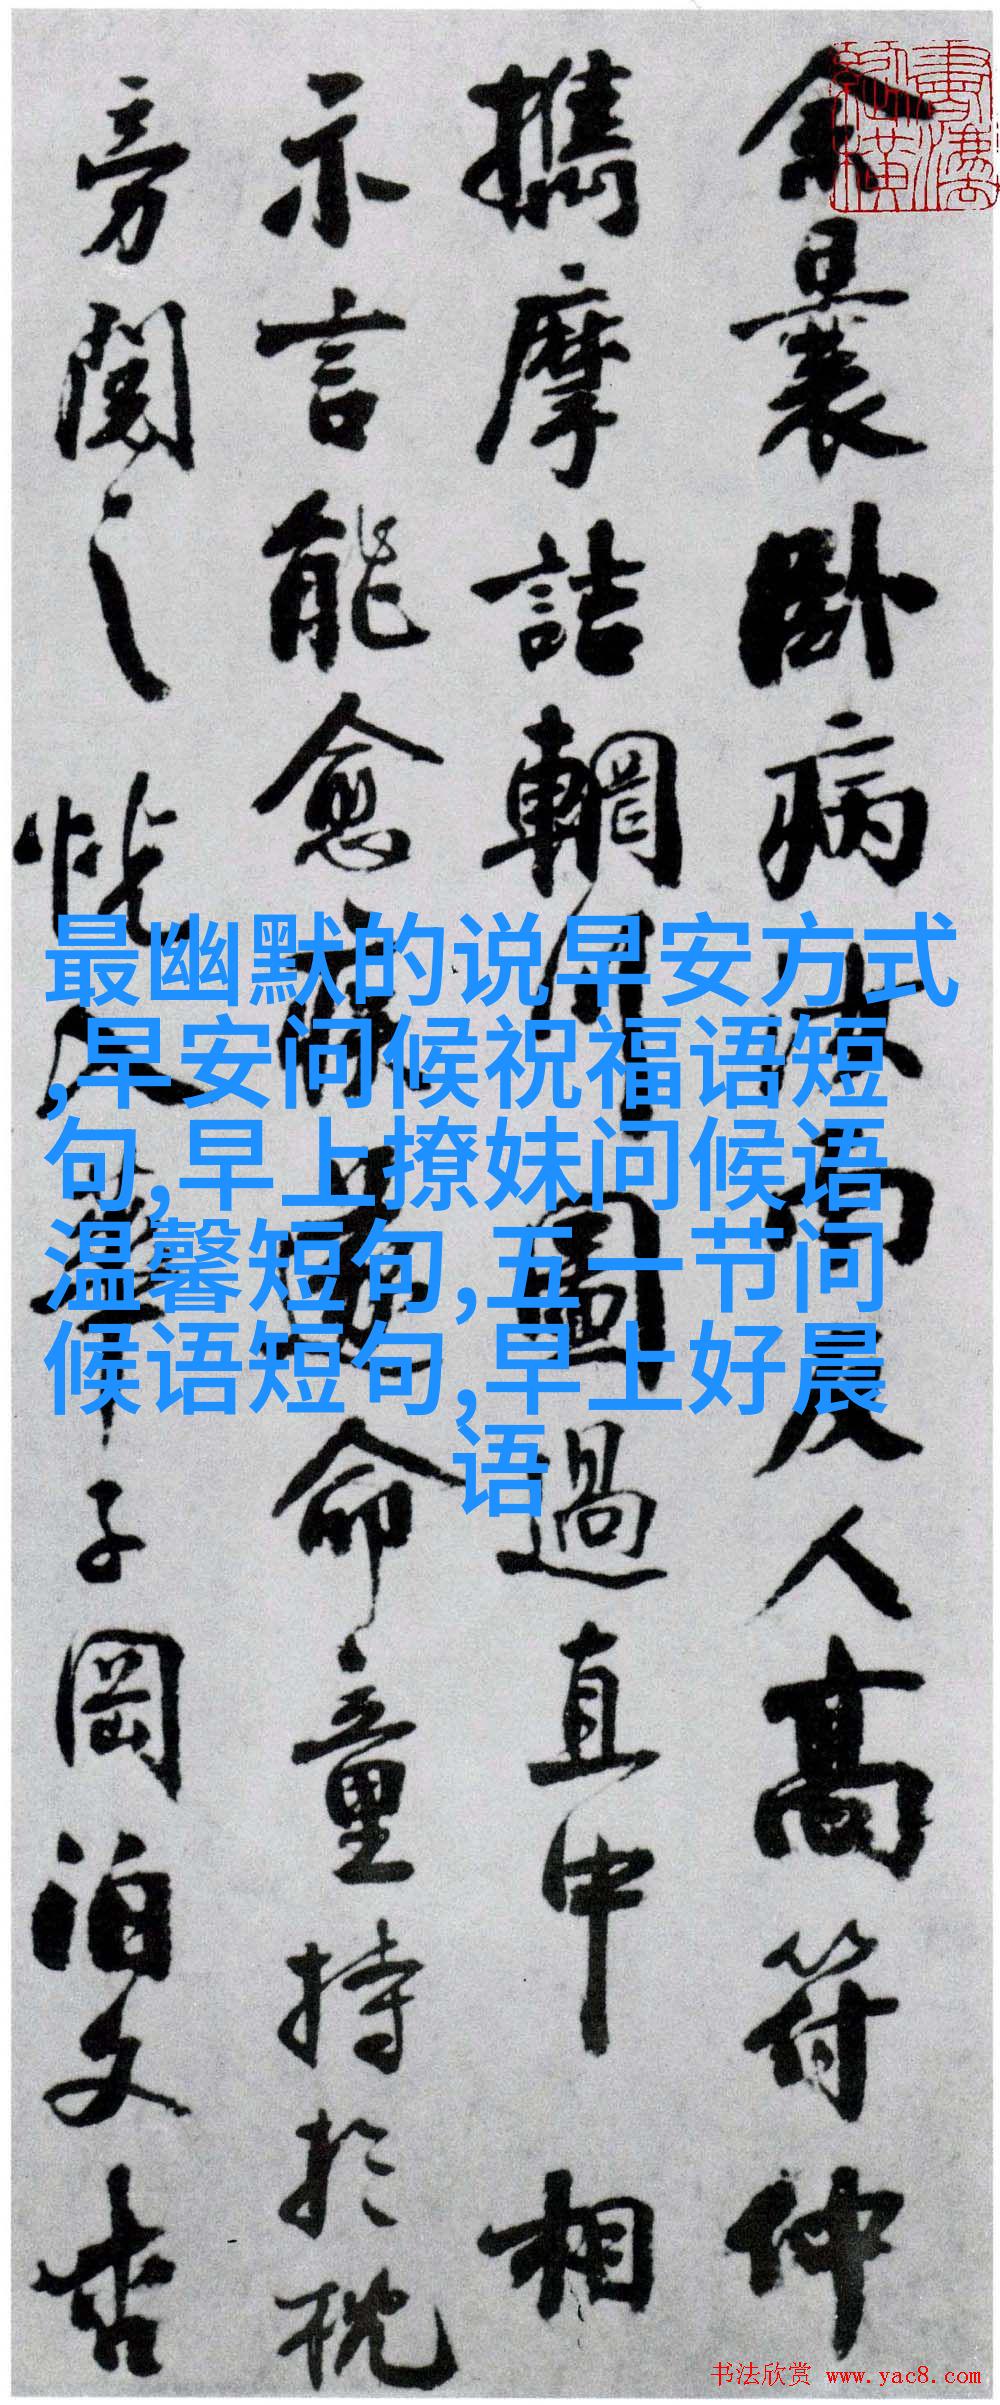 余曩卧病汝南友人高符仲
攜摩詰輞川圖過直中相
示言能愈疾遂命童持於枕
旁閱之恍入華子岡泊文杏
最幽默的说早安方式
,早安问候祝福语短
句,早上撩妹问候语
温馨短句,五一节问
候语短句,早上好晨
语
书法欣赏 www.yac8.com